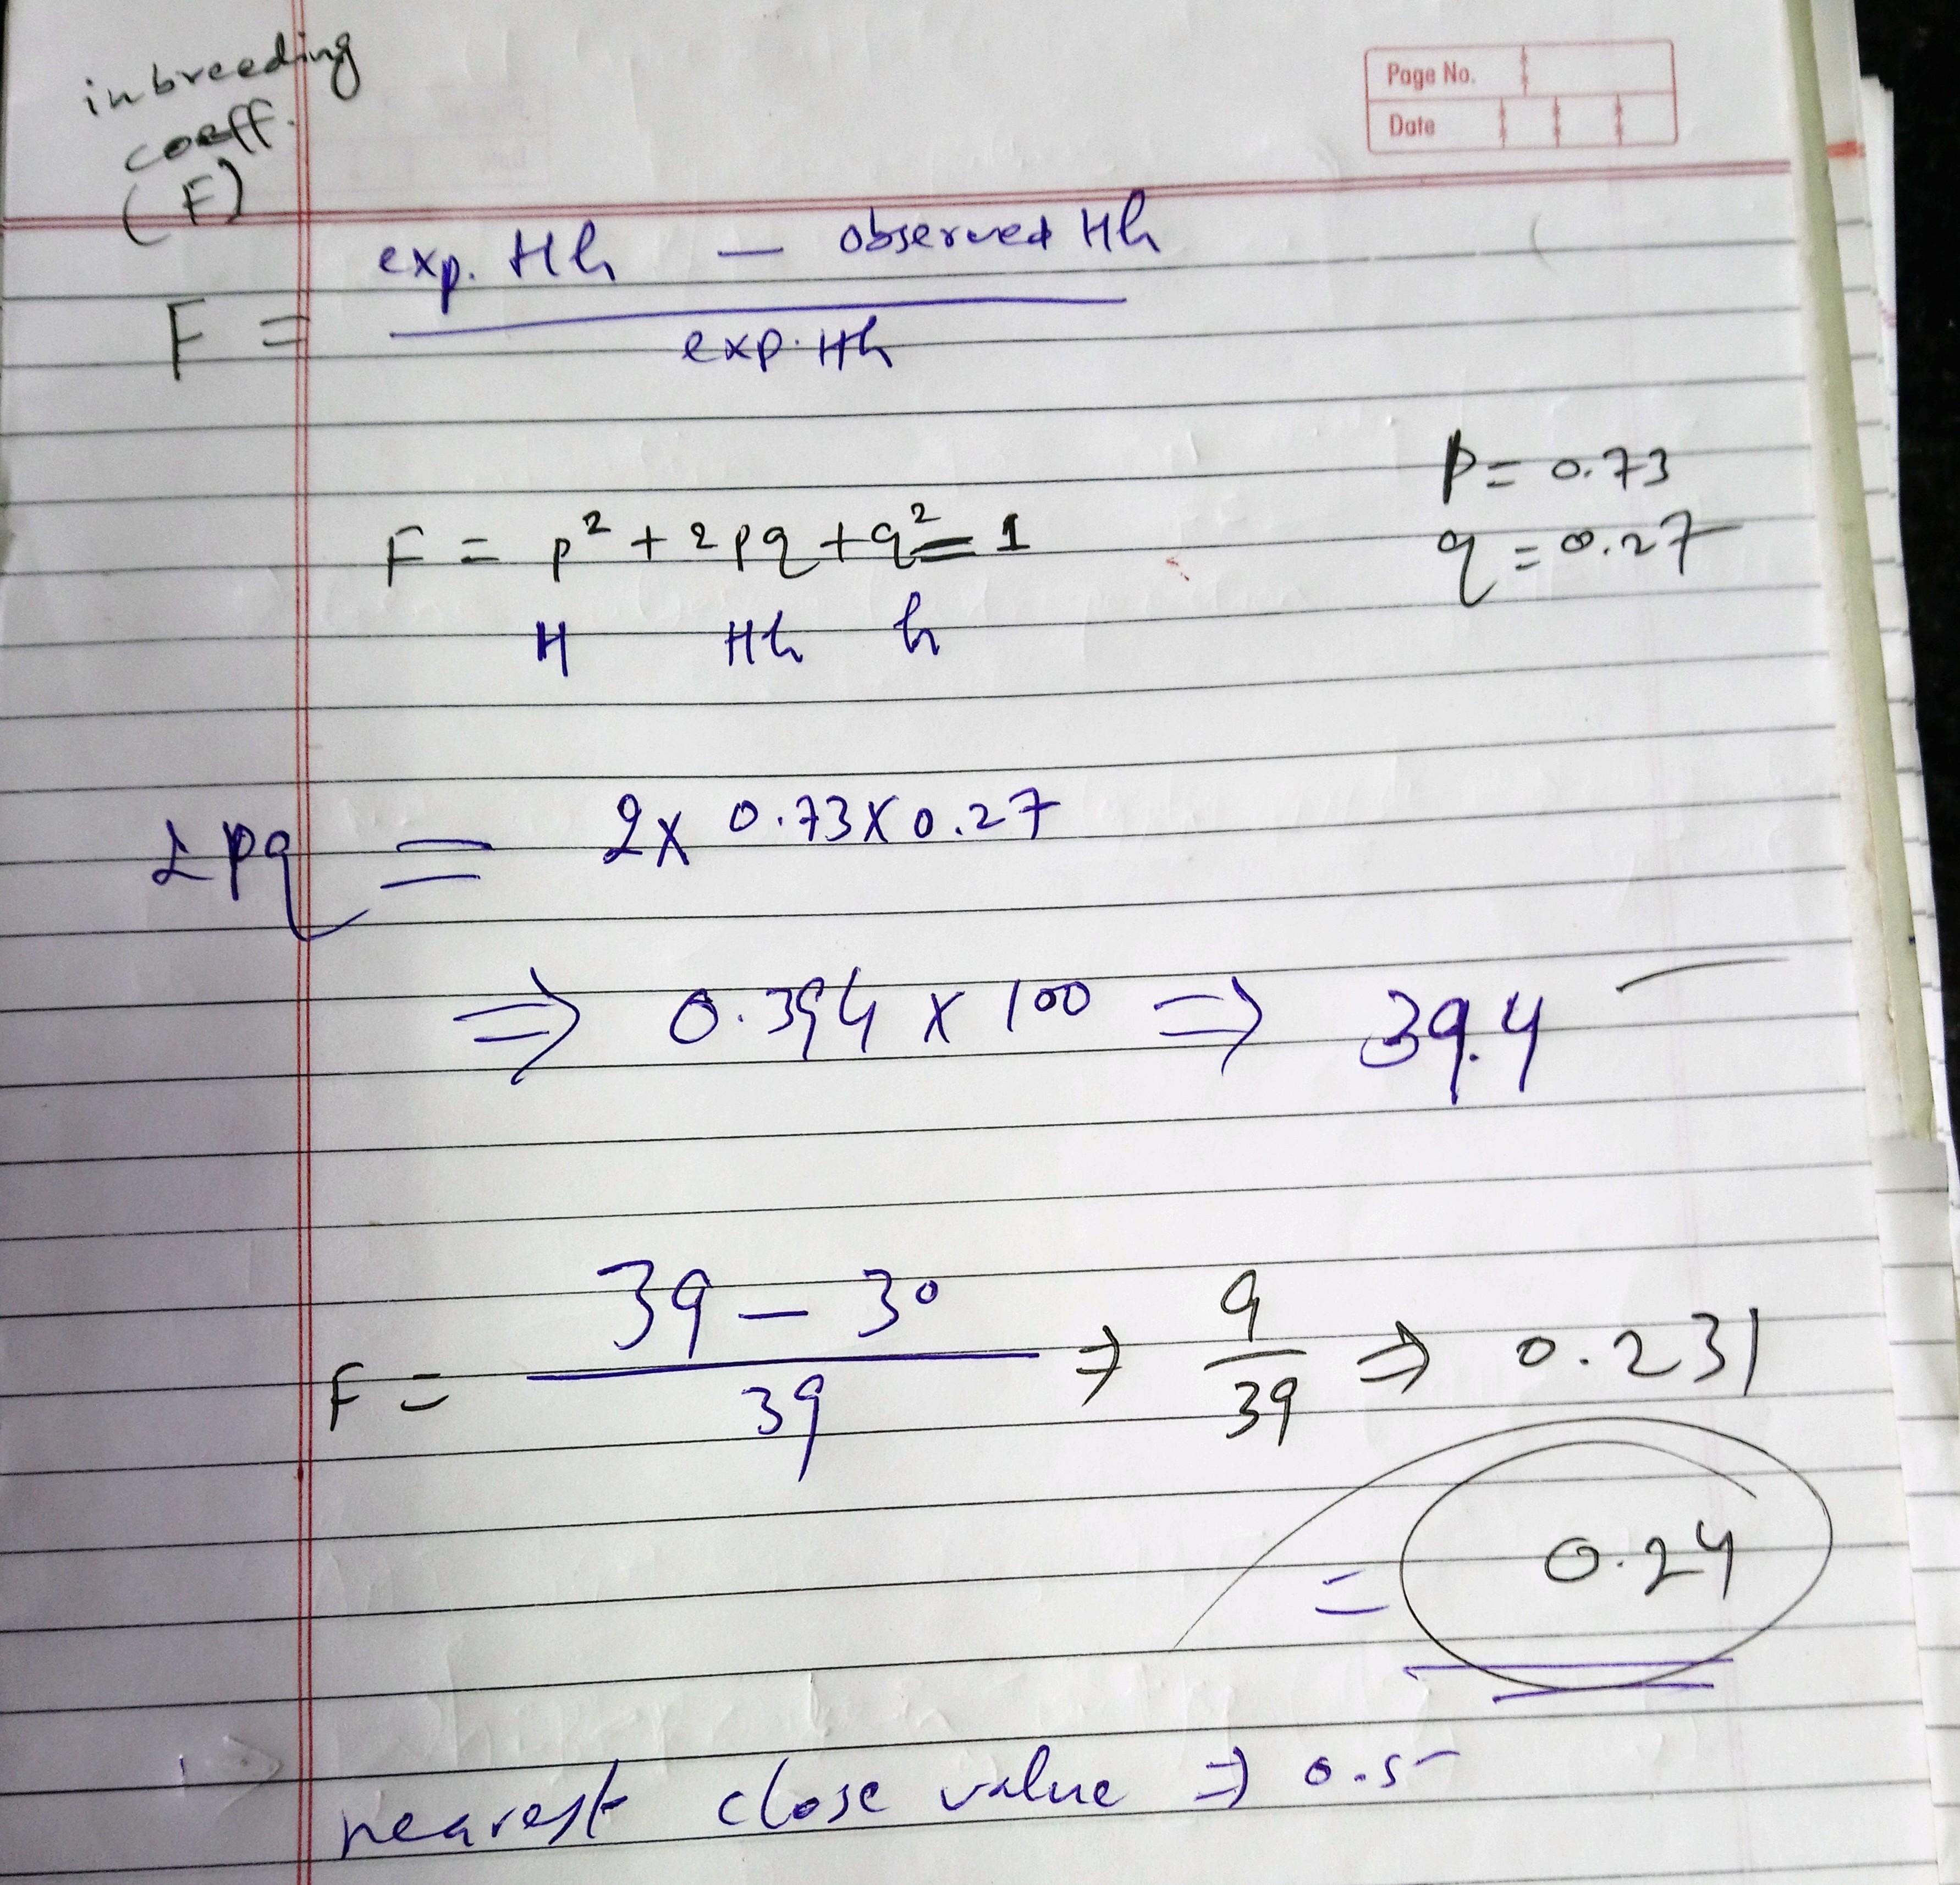 inbreeding
coeff.
(F)
Page No.
Date
F = exp. Hh - observed Hh
exp. Hh
p = 0.73
q = 0.27
F = p² + 2pq + q² = 1
H Hh h
2pq = 2 x 0.73 x 0.27
⇒ 0.394 x 100 ⇒ 39.4
F = 39 - 30 ⇒ 9 ⇒ 0.231
39 39
= 0.24
nearest close value ⇒ 0.5